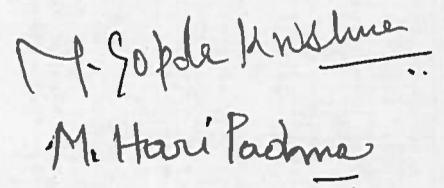 M. Gopala Krishna
M. Hari Padma